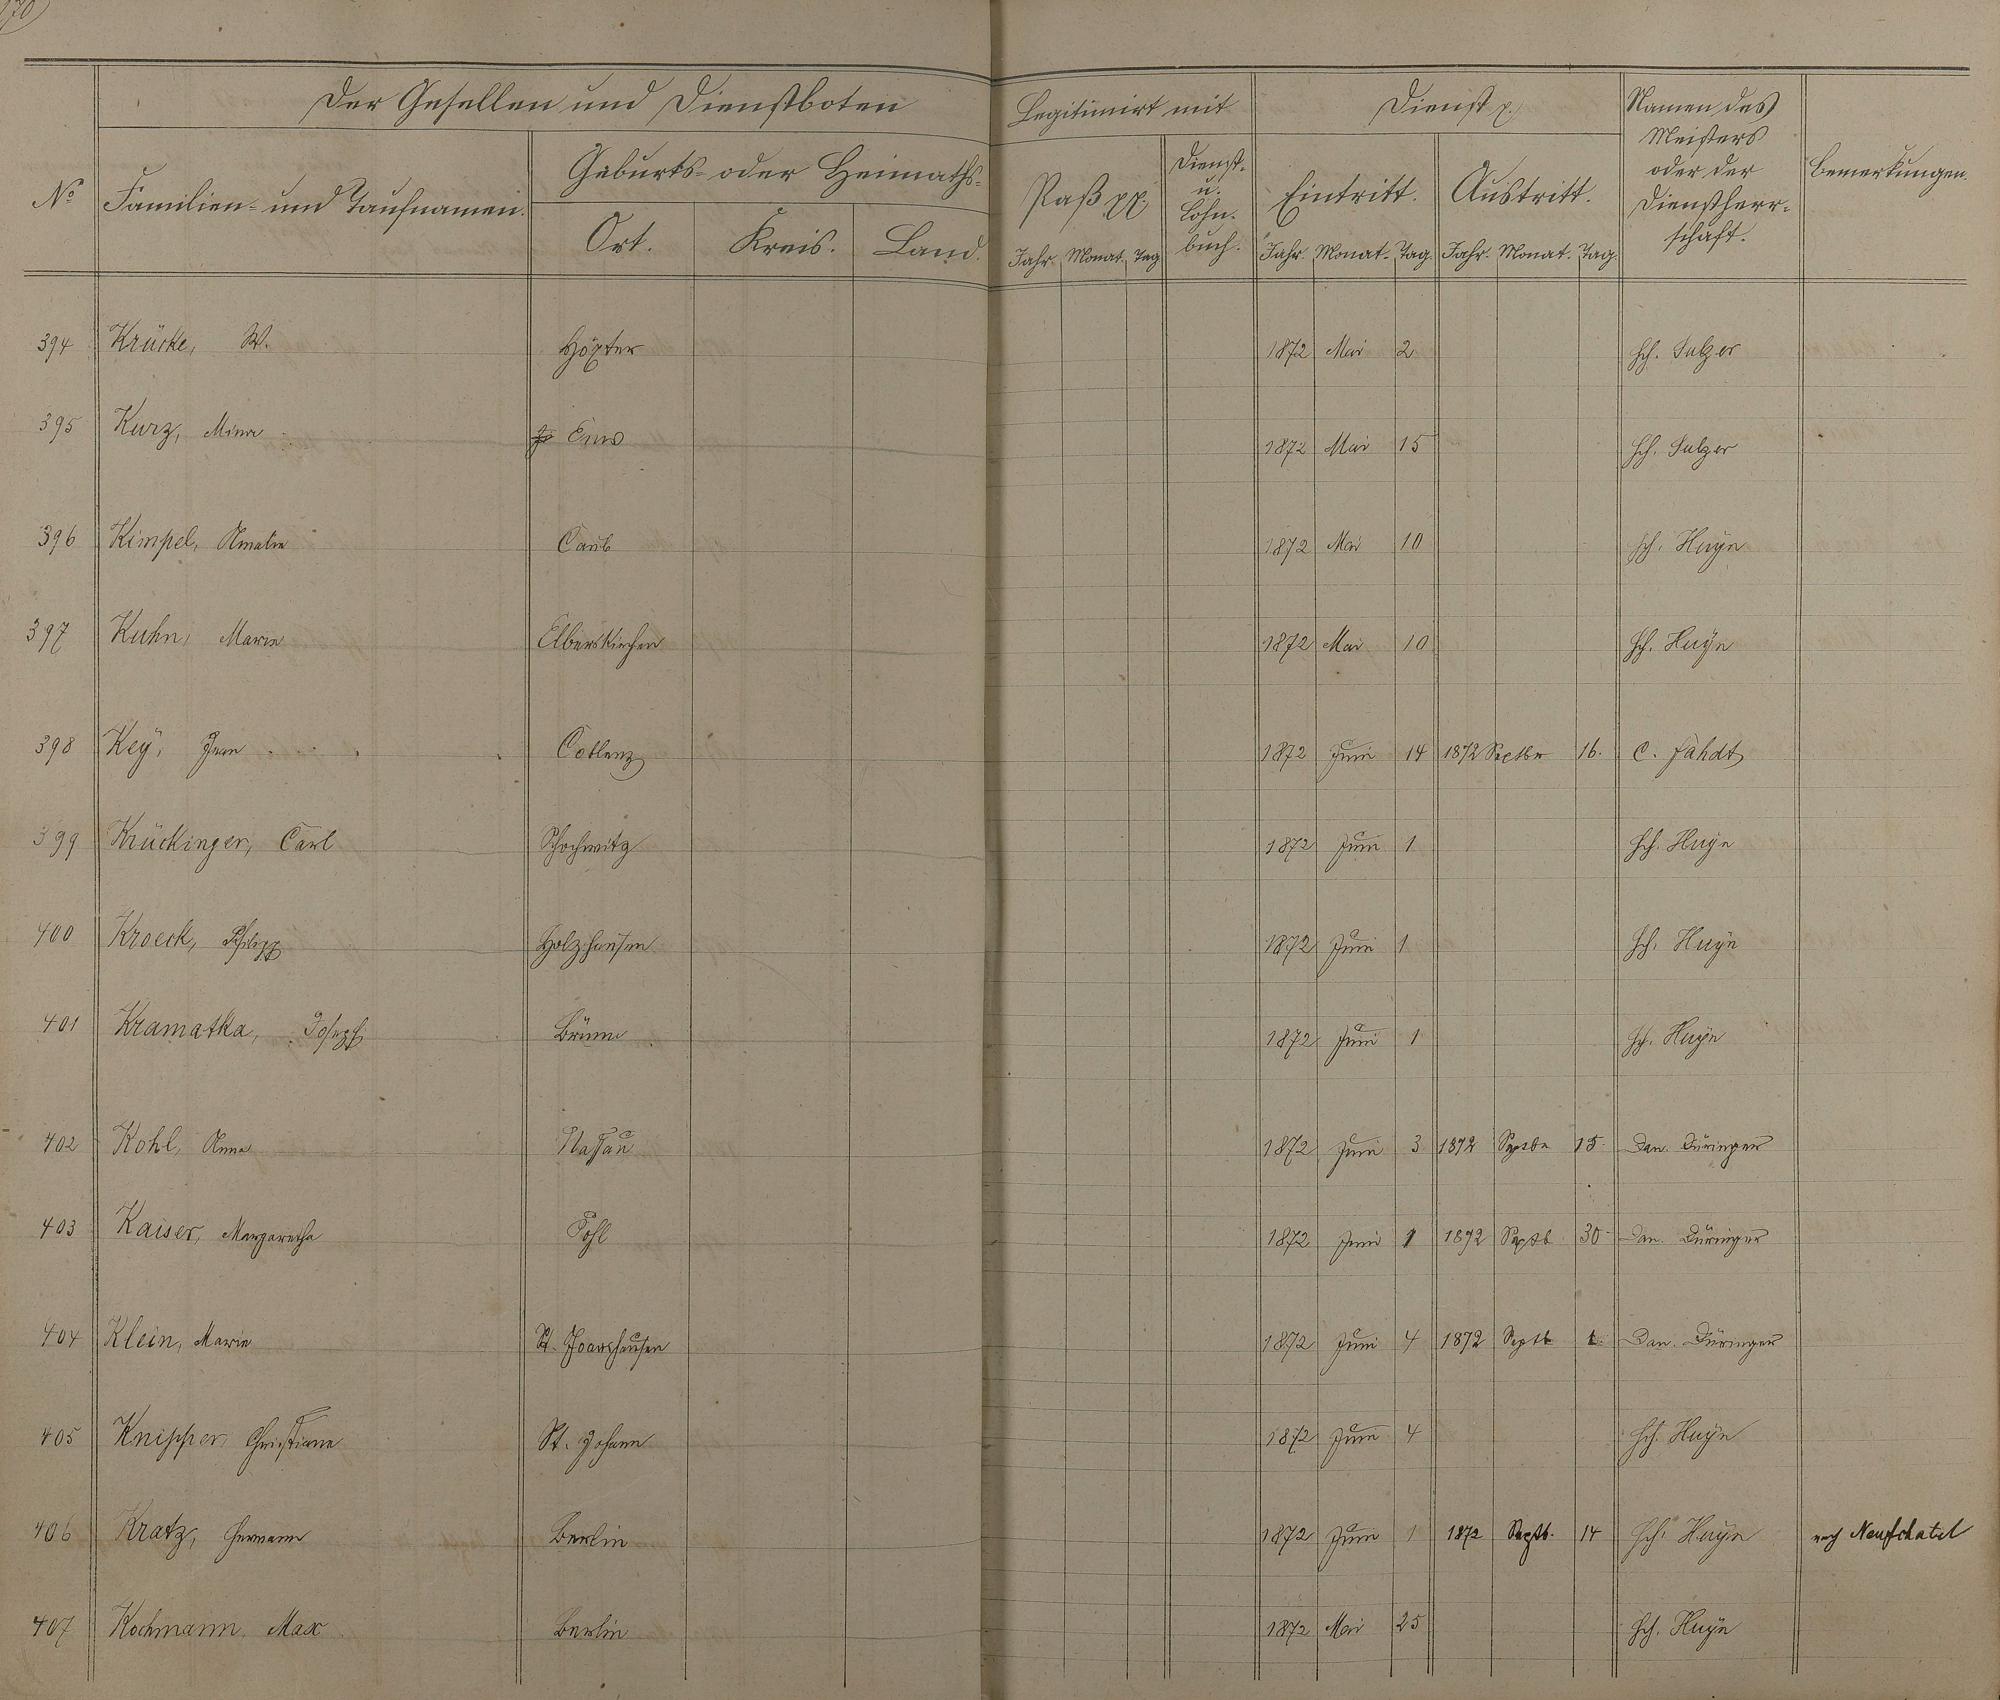 Der Gesellen und Dienstboten
Legitimirt mit
Dienst p.
Namen des
Meisters
oder der
Dienstherr-
schaft.
Bemerkungen.
No
Familien- und Taufnamen.
Geburts- oder Heimaths-
Ort. Kreis. Land.
Paß pp.
Dienst-
u.
Lohn-
buch.
Eintritt. Austritt.
Jahr. Monat. Tag
Jahr. Monat. Tag. Jahr. Monat. Tag.
394 Krücke, W. Höxter 1872 Mai 2 Hch. Sulzer
395 Kurz, Mina Ems 1872 Mai 15 Hch. Sulzer
396 Kimpel, Amalie Caub 1872 Mai 10 Hch. Huyn
397 Kuhn, Marie Elberskirchen 1872 Mai 10 Hch. Huyn
398 Key, Jean Coblenz 1872 Juni 14 1872 Septbr 16. C. Jahdt
399 Krückinger, Carl Schochwitz 1872 Juni 1 Hch. Huyn
400 Kroeck, Philipp Holzhausen 1872 Juni 1 Hch. Huyn
401 Kramatka, Joseph Brünn 1872 Juni 1 Hch. Huyn
402 Kohl, Anna Nassau 1872 Juni 3 1872 Septbr 15 Dan. Düringer
403 Kaiser, Margaretha Pohl 1872 Juni 1 1872 Septb 30 Dan. Düringer
404 Klein, Marie St. Goarshausen 1872 Juni 4 1872 Septb 1 Dan. Düringer
405 Knipper, Christiane St. Johann 1872 Juni 4 Hch. Huyn
406 Kratz, Hermann Berlin 1872 Juni 1 1872 Septb. 14 Hch. Huyn nach Neufchatel
407 Kochmann, Max Berlin 1872 Mai 25 Hch. Huyn